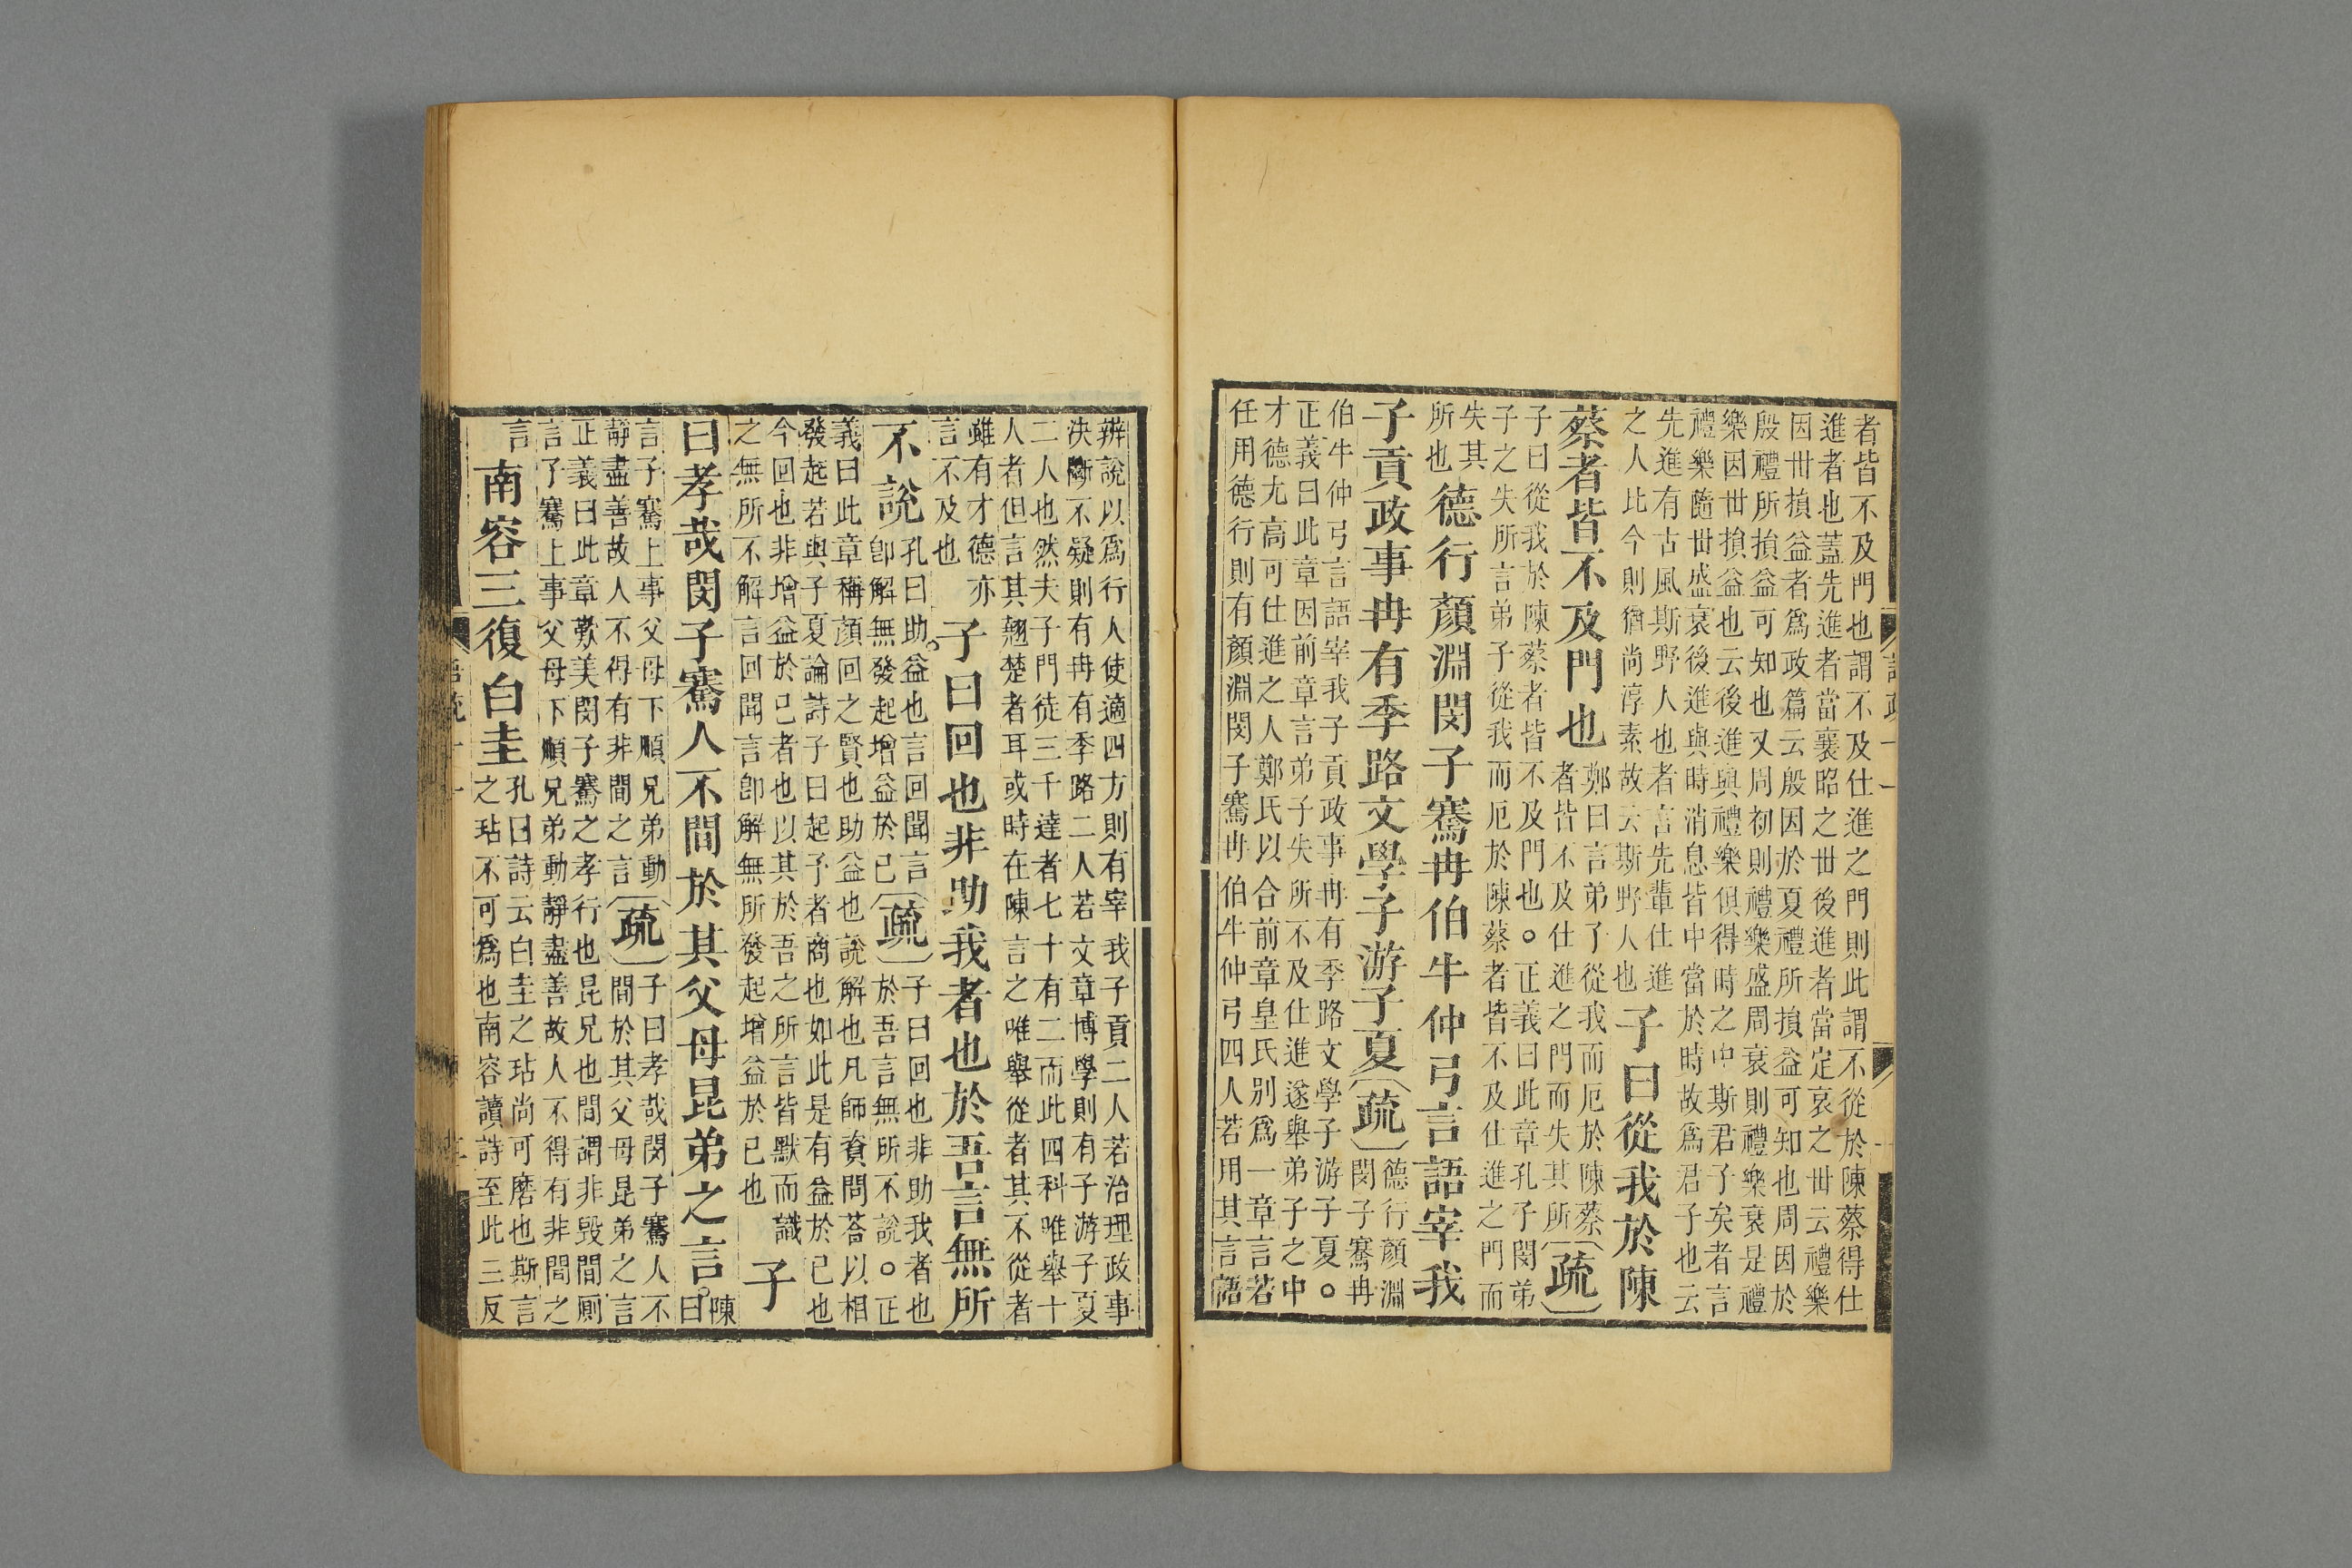 者皆不及門也謂不及仕進之門則此謂不從於陳蔡得仕
進者也蓋先進者當襄昭之世後進者當定哀之世云禮樂
因世損益者爲政篇云殷因於夏禮所損益可知也周因於
殷禮所損益可知也又周初則禮樂盛周衰則禮樂衰是禮
樂因世損益也云後進與禮樂俱得時之中斯君子矣者言
禮樂隨世盛衰後進與時消息皆中當於時故爲君子也云
先進有古風斯野人也者言先輩仕進
之人比今則猶尚淳素故云斯野人也
子曰從我於陳
蔡者皆不及門也
鄭曰言弟子從我而厄於陳蔡
者皆不及仕進之門而失其所
疏
子曰從我於陳蔡者皆不及門也○正義曰此章孔子閔弟
子之失所言弟子從我而厄於陳蔡者皆不及仕進之門而
失其
所也
德行顏淵閔子騫冉伯牛仲弓言語宰我
子貢政事冉有季路文學子游子夏
疏
德行顏淵
閔子騫冉
伯牛仲弓言語宰我子貢政事冉有季路文學子游子夏○
正義曰此章因前章言弟子失所不及仕進遂舉弟子之中
才德尤高可仕進之人鄭氏以合前章皇氏别爲一章言若
任用德行則有顏淵閔子騫冉伯牛仲弓四人若用其言語
辨說以爲行人使適四方則有宰我子貢二人若治理政事
決斷不疑則有冉有季路二人若文章博學則有子游子夏
二人也然夫子門徒三千達者七十有二而此四科唯舉十
人者但言其翹楚者耳或時在陳言之唯舉從者其不從者
雖有才德亦
言不及也
子曰回也非助我者也於吾言無所
不說
孔曰助益也言回聞言
卽解無發起增益於己
疏
子曰回也非助我者也
於吾言無所不說○正
義曰此章稱顏回之賢也助益也說解也凡師資問荅以相
發起若與子夏論詩子曰起予者商也如此是有益於己也
今回也非增益於己者也以其於吾之所言皆默而識
之無所不解言回聞言卽解無所發起增益於己也
子
曰孝哉閔子騫人不間於其父母昆弟之言
陳
曰
言子騫上事父母下順兄弟動
靜盡善故人不得有非間之言
疏
子曰孝哉閔子騫人不
間於其父母昆弟之言
正義曰此章歎美閔子騫之孝行也昆兄也間謂非毀間厠
言子騫上事父母下順兄弟動靜盡善故人不得有非間之
言
南容三復白圭
孔曰詩云白圭之玷尚可磨也斯言
之玷不可爲也南容讀詩至此三反